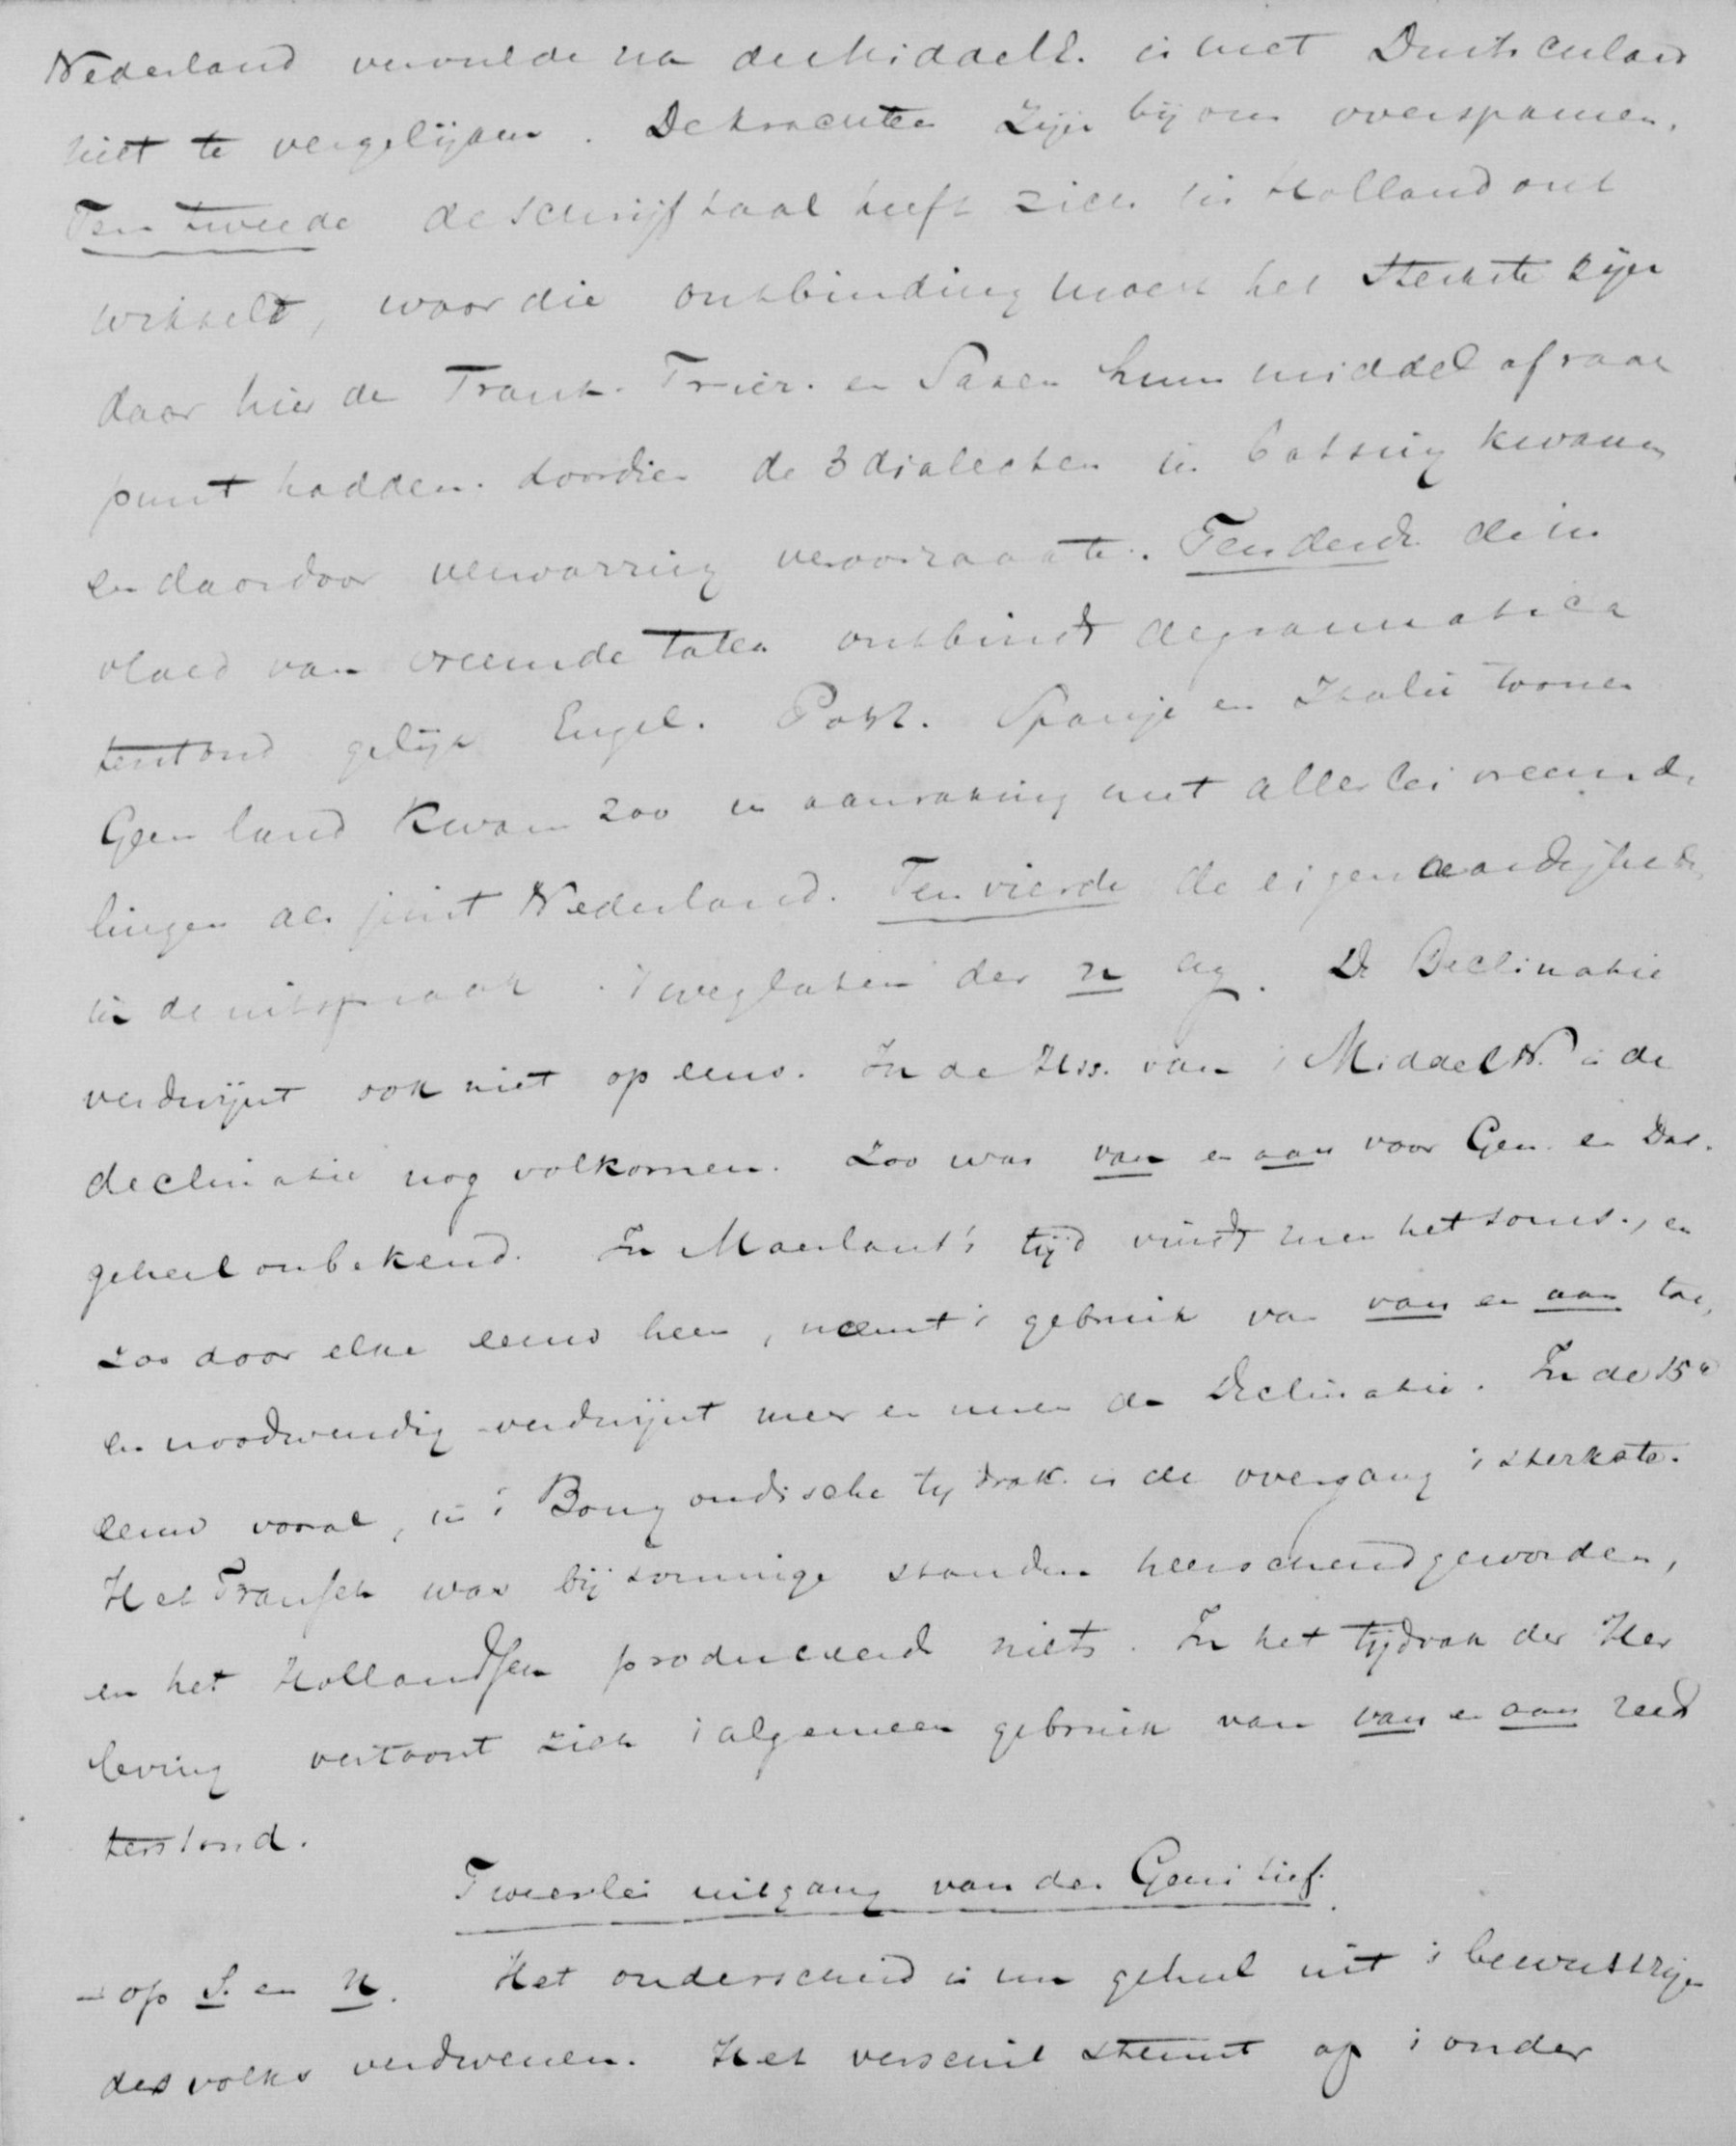 Nederland vervulde na de Middele. is met Duitschland
niet te vergelijken. De krachten zijn bij ons overspannen.
Ten tweede de schrijftaal heeft zich in Holland ont
wikkeld, waar die ontbinding moest het sterkste zijn
daar hier de Frank. Fries. en Saxen hun middel afraak
punt hadden. doordien de 3 dialecten in botsing kwamen
en daardoor verwarring veroorzaakte. Ten derde de in
vloed van vreemde talen ontbindt de grammatica
terstond gelijk Engel. Port. Spanje en Italie toonen
Geen land kwam zoo in aanraking met allerlei vreemde
lingen als juist Nederland. Ten vierde de eigenaardigheden
in de uitspraak 't weglaten der n ag. De Declinatie
verdwijnt ook niet op eens. In de Hss. van 't Middel N. is de
declinatie nog volkomen. Zoo was van en aan voor Gen. en Dat.
geheel onbekend. In Maerlant's tijd vindt men het soms, en
zoo door elke eeuw heen, neemt 't gebruik van van en aan toe,
en noodwendig verdwijnt meer en meer de Declinatie. In de 15e
eeuw vooral, in 't Bourgondische tijdvak is de overgang 't sterkste.
Het Fransch was bij sommige standen heerschend geworden,
en het Hollandsch produceerde niets. In het tijdvak der Her
leving vertoont zich 't algemeen gebruik van van en aan reeds
terstond.
Tweeerlei uitgang van den Genitief.
- op S. en N. Het onderscheid is nu geheel uit 't bewustzijn
des volks verdwenen. Het verschil steunt op 't onder